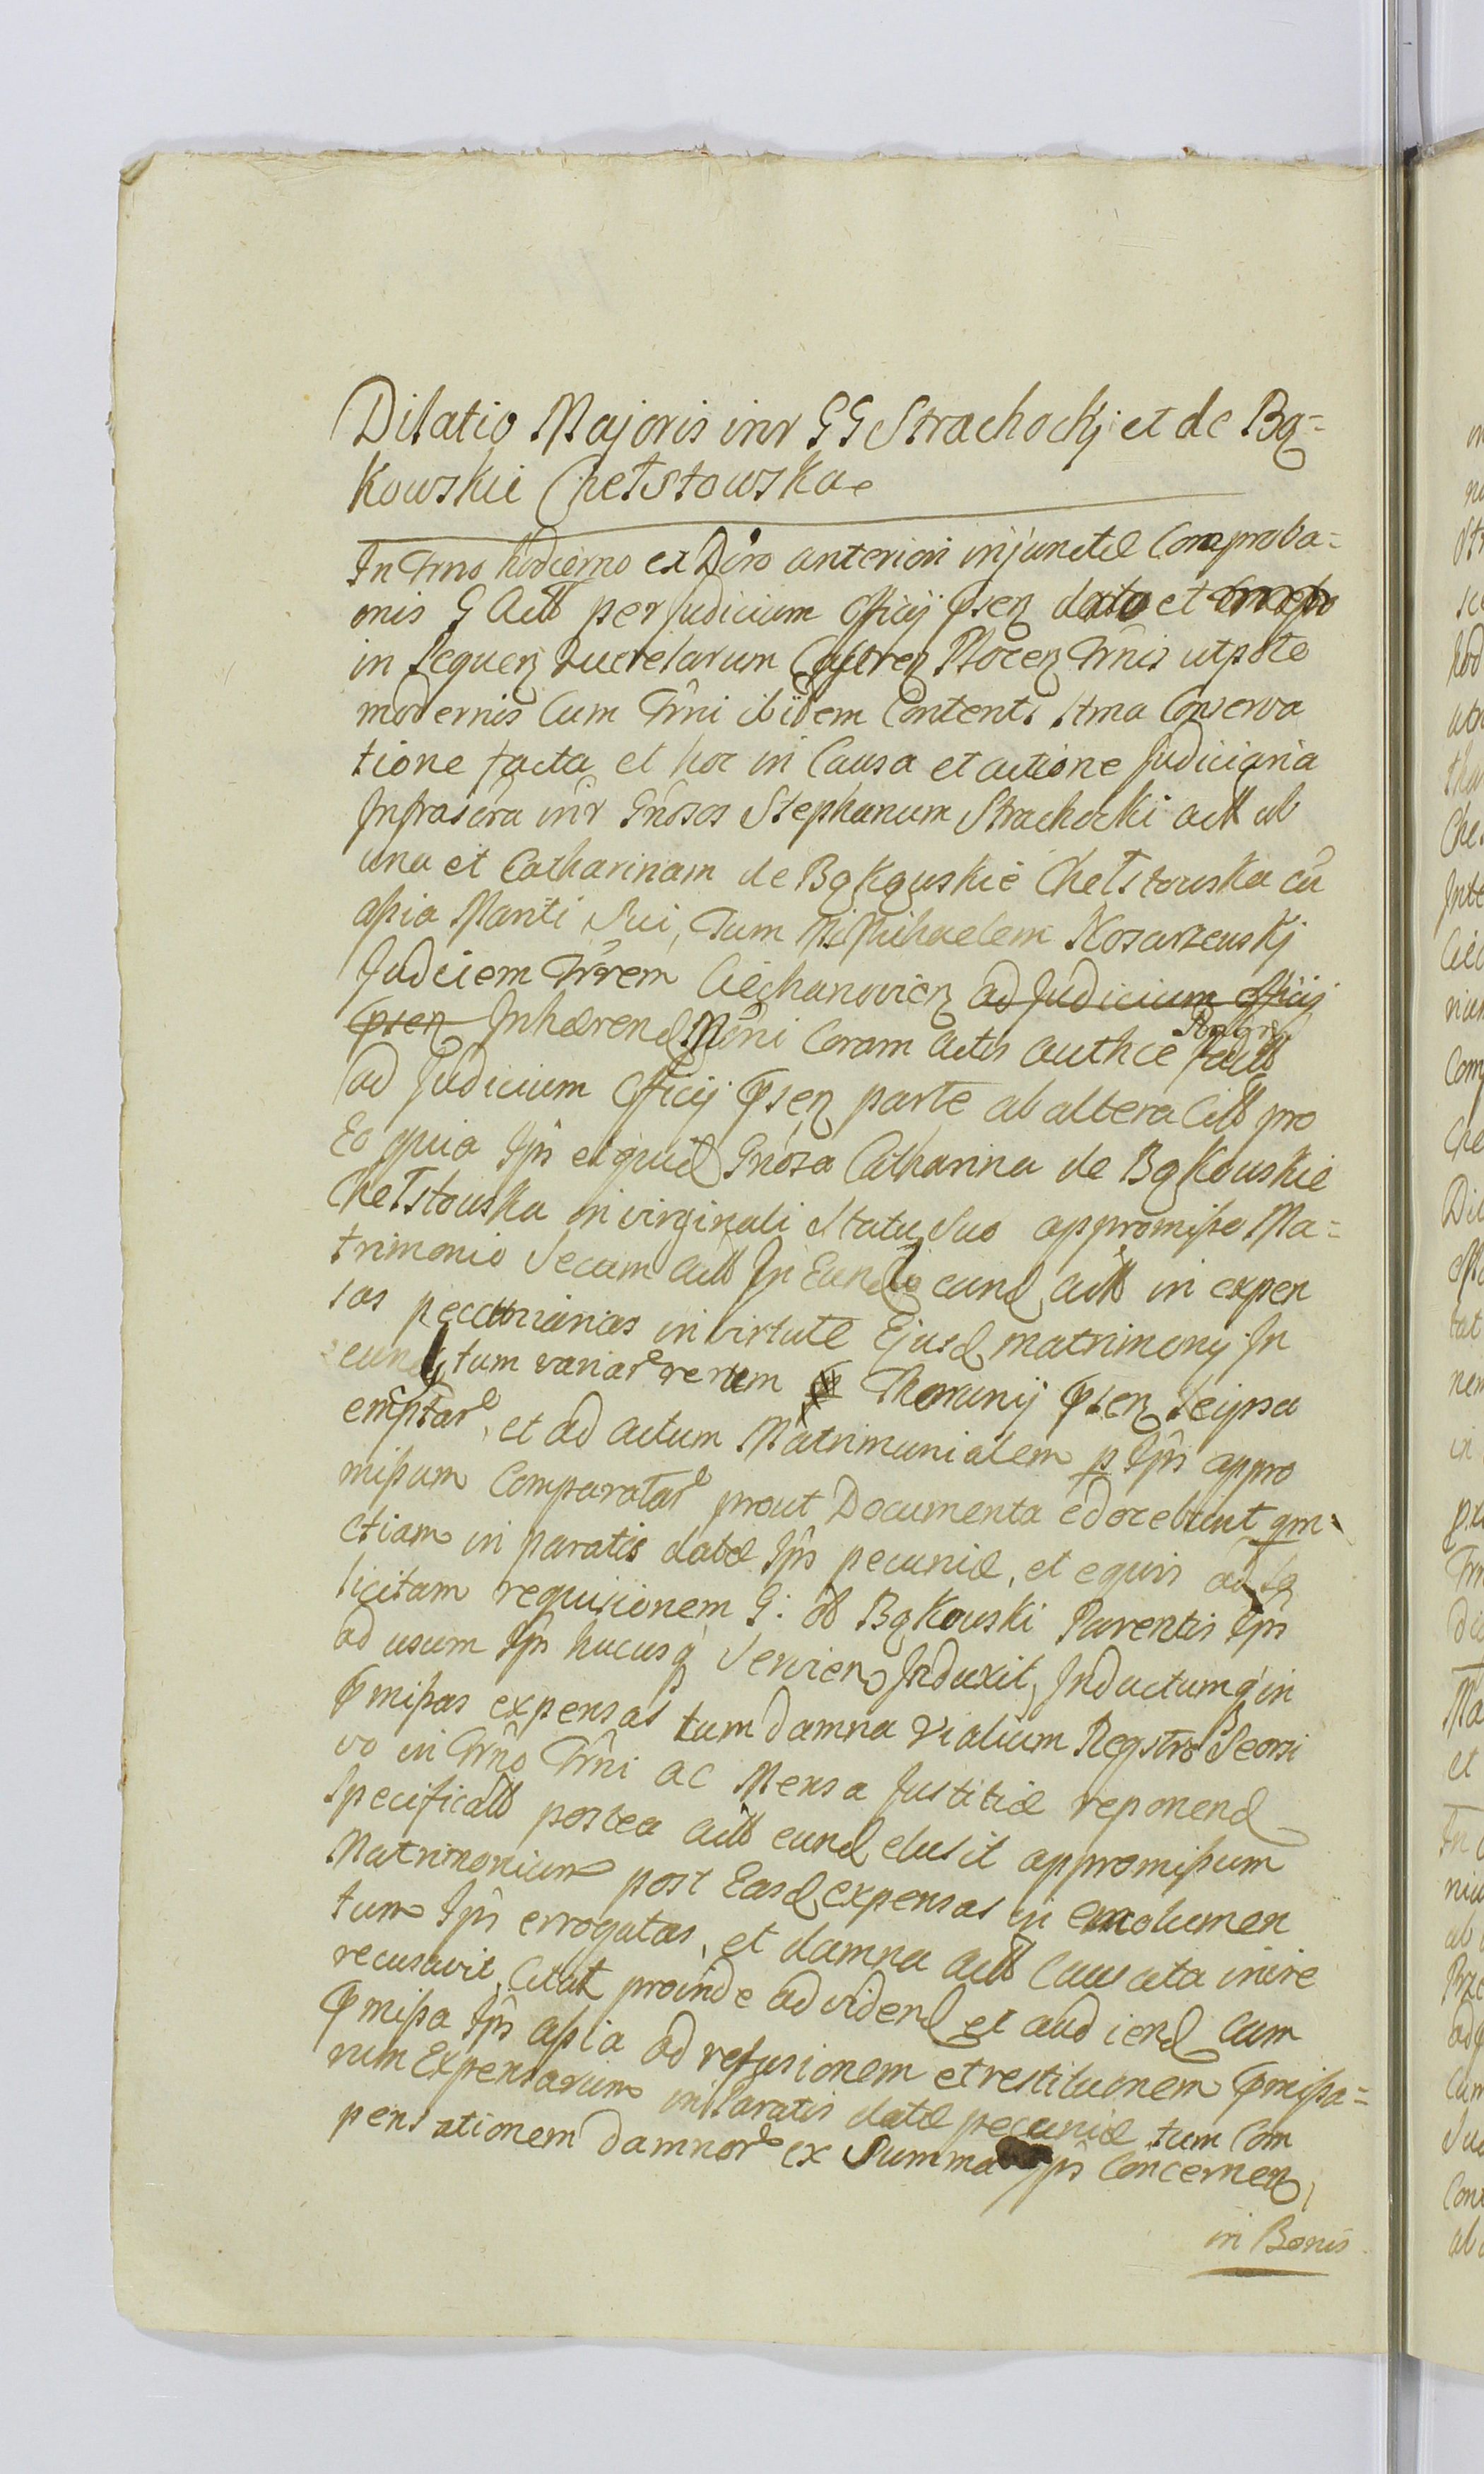 Dilatio Majoris intr GG Strachockj et de Bą=
kowskie Chełstowskae
In Trno hodierno ex Dcro anteriori injunctæ Comproba=
onis G Actt per Judicium Officij Psenz dato et
in Sequenz querelarum Castrenz Plocenz Trnis utpote
modernis Cum Trni ibidem Content Conserva
tione facta et hoc in Causa et actione Judiciaria
Infrascra intr Gnosos Stephanum Strachocki actt ab
una et Catharinam de Bąkowskie Chełstowska cu
assia Mariti Sui, Tum M Michaelem Kosarzewskj
Judicem Trrem Ciechanovienz ad Judicium officij
Psenz Inhærend Mni Coram Actis authce
ad Judicium Officij Psenz parte ab altera Citt pro
Eo quia Ipsi et quid Gnosa Catharina de Bąkowskie
Chełstowska in virginali Statu Suo appromisso Ma=
trimonio Secum actt In Eundo eund actt in expen
sas pecuniarias in virtute Ejusd matrimonij In
eund, tum variar rerum Thorunij Psenz Se ipsa
emptar, et ad actum Matrimunialem p Ipsi appro
missum Comparatar prout Documenta edocebunt qm
etiam in paratis datæ Ipsi pecuniæ, et equis ad
licitam requisionem G: ol Bąkowski Parentis Ipsi
ad usum Ipsi hucusq Servien Induxit, Inductumq in
Pmissas expensas tum damna vialium Regstro Seorsi
vo in Trno Trni ac Mensa Justitiæ reponend
Specificatt postea actt eund elusit appromissum
Matrimonium post Easd expensas in emolumen
tum Ipsi errogatas, et damna actt Causata inire
recusavit, Citat proinde ad vidend et audiend cum
Pmissa Ipsi assia ad refusionem et restituonem Pmissa=
rum Expensarum in Paratis datæ pecuniæ tum Com
pensationem damnor ex Summa Ipsi Concernenz,
in Bonis